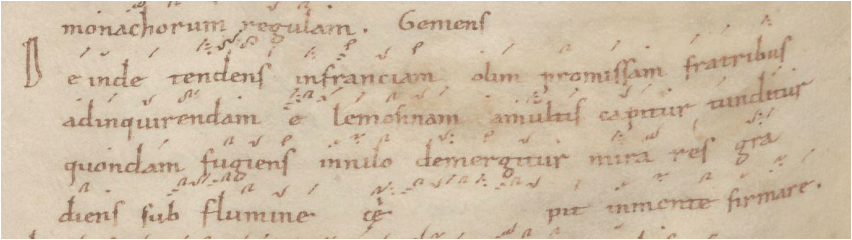 monachorum regulam. Gemens
De inde tendens infranciam olim promissam fratribus
adinquirendam e lemosinam amultis capitur tunditur
quondam fugiens innilo demergitur mira res gra
diens sub flumine cę pit inmente firmare.